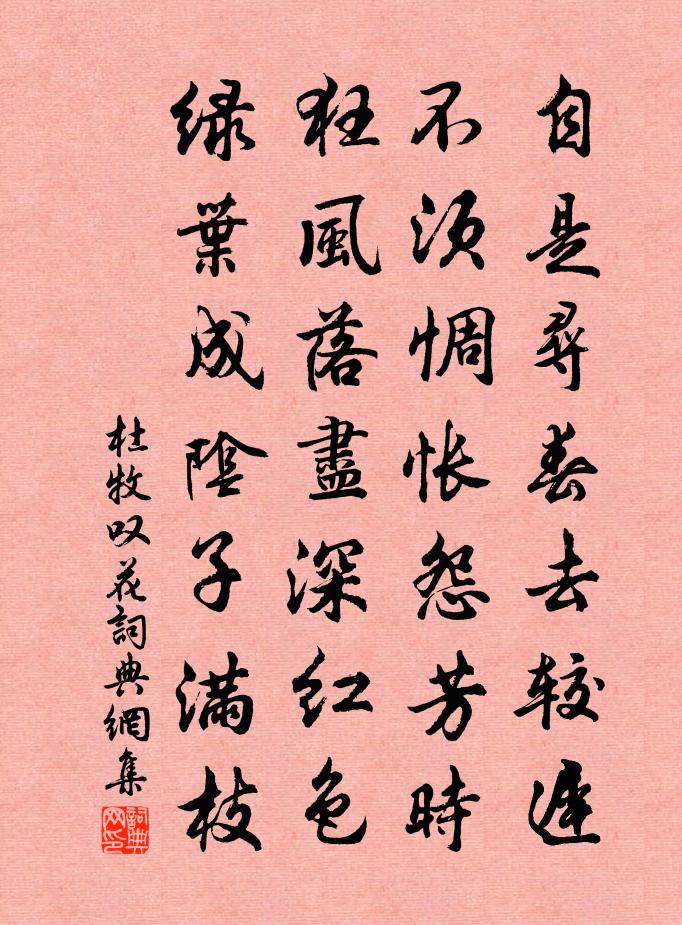 自是尋春去较遲
不须惆怅怨芳時
狂風落盡深红色
绿葉成陰子满枝
杜牧叹花詞典網集
詞典网印